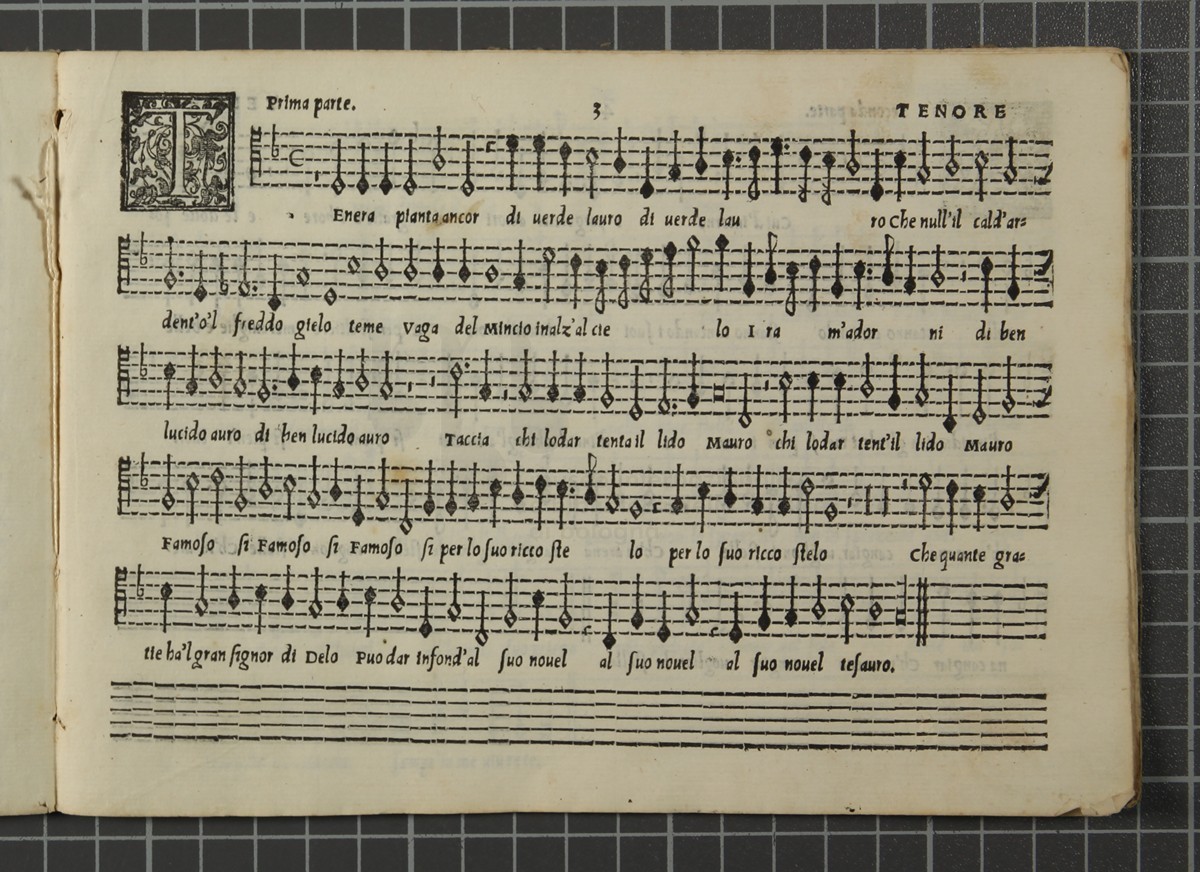 Prima parte. 3 TENORE
T Enera pianta ancor di uerde lauro di uerde lau ro Che null'il cald'ar=
dent'o'l freddo gielo teme Vaga del Mincio inalz'al cie lo I ra m'ador ni di ben
lucido auro di ben lucido auro Taccia chi lodar tenta il lido Mauro chi lodar tent'il lido Mauro
Famoso si Famoso si Famoso si per lo suo ricco ste lo per lo suo ricco stelo Che quante gra=
tie ha'l gran signor di Delo Puo dar infond'al suo nouel al suo nouel al suo nouel tesauro.